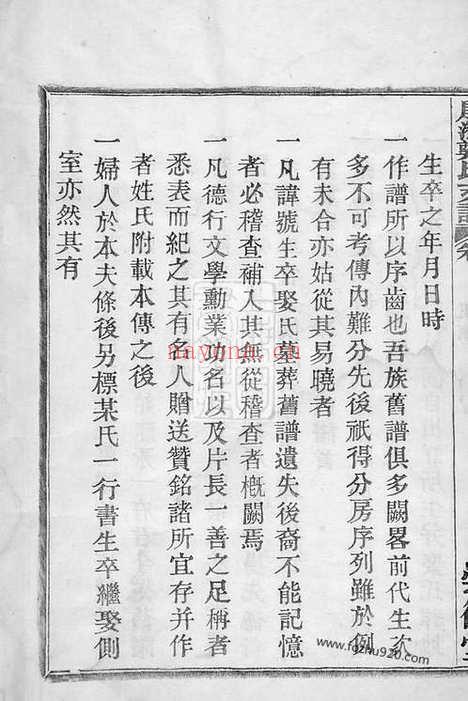 生卒之年月日時
一作譜所以序齒也吾族舊譜俱多闕畧前代生次
多不可考傳內難分先後祇得分房序列雖於例
有未合亦姑從其易曉者
一凡諱號生卒娶氏墓葬舊譜遺失後裔不能記憶
者必稽查補入其無從稽查者概闕焉
一凡德行文學勳業功名以及片長一善之足稱者
悉表而紀之其有名人贈送贊銘諸所宜存并作
者姓氏附載本傳之後
一婦人於本夫條後另標某氏一行書生卒繼娶側
室亦然其有
nayong.cn
www.fgzhu920.com